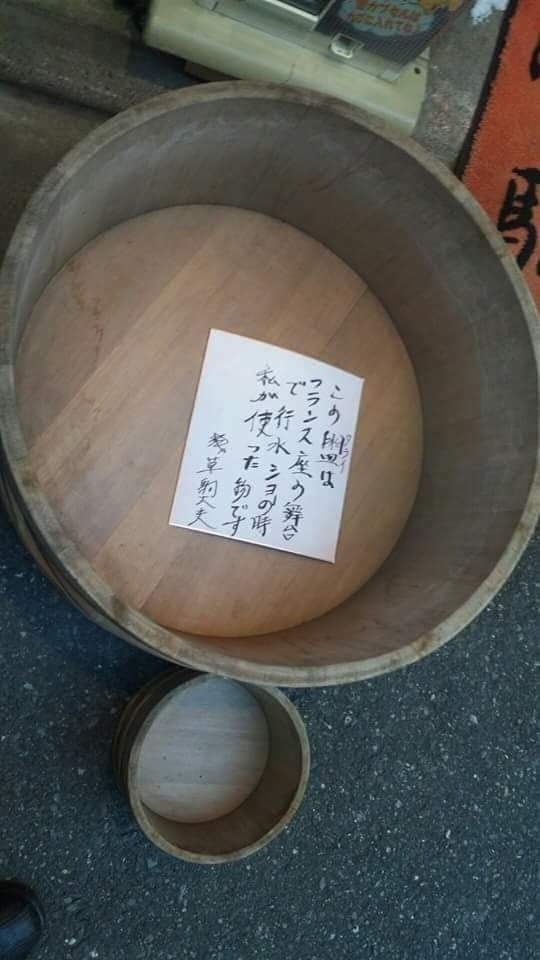 この盥は
タライ
フランス座の舞台
で行水ショの時
私が使った物です
草駒太夫
カゴに入れても!